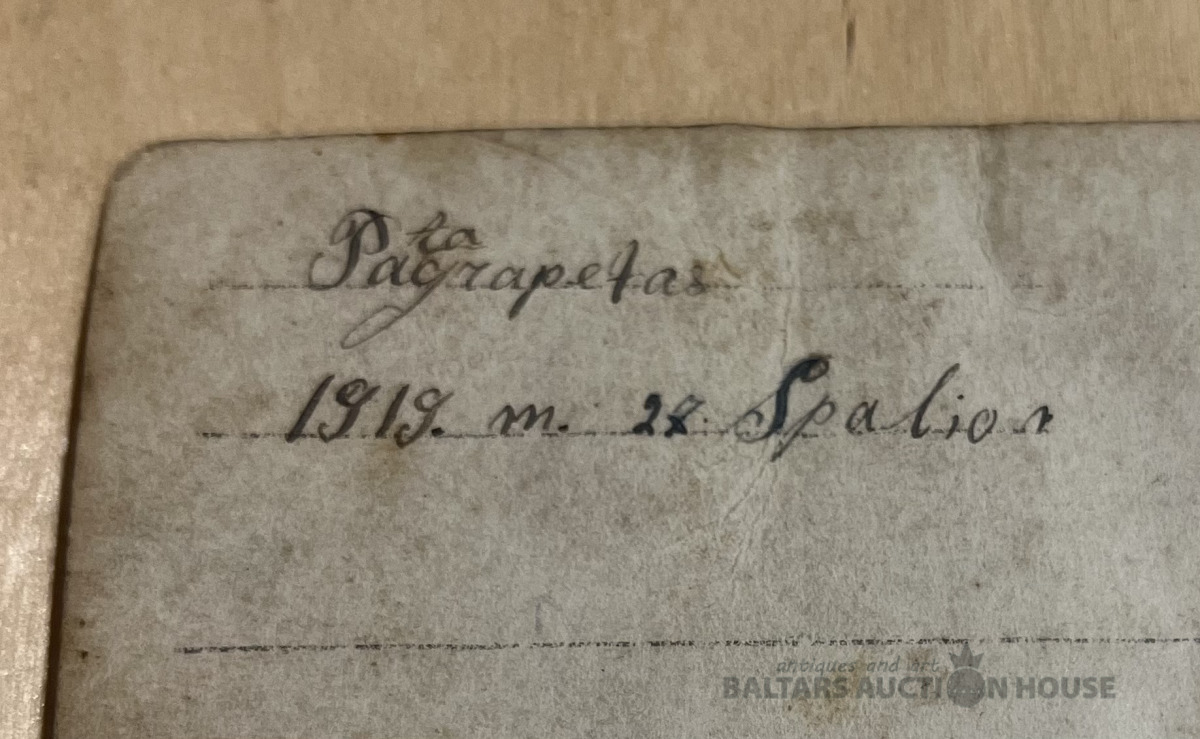 Patagrapetas
1919. m. 28. Spalion
antiques and art
BALTARS AUCTION HOUSE